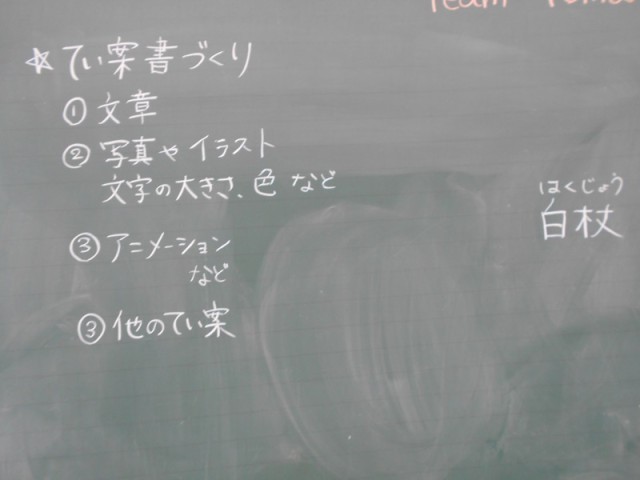 Team
☆ てい案書づくり
① 文章
② 写真や イラスト
文字の大きさ、色 など
③ アニメーション
など
③ 他のてい案
はくじょう
白杖